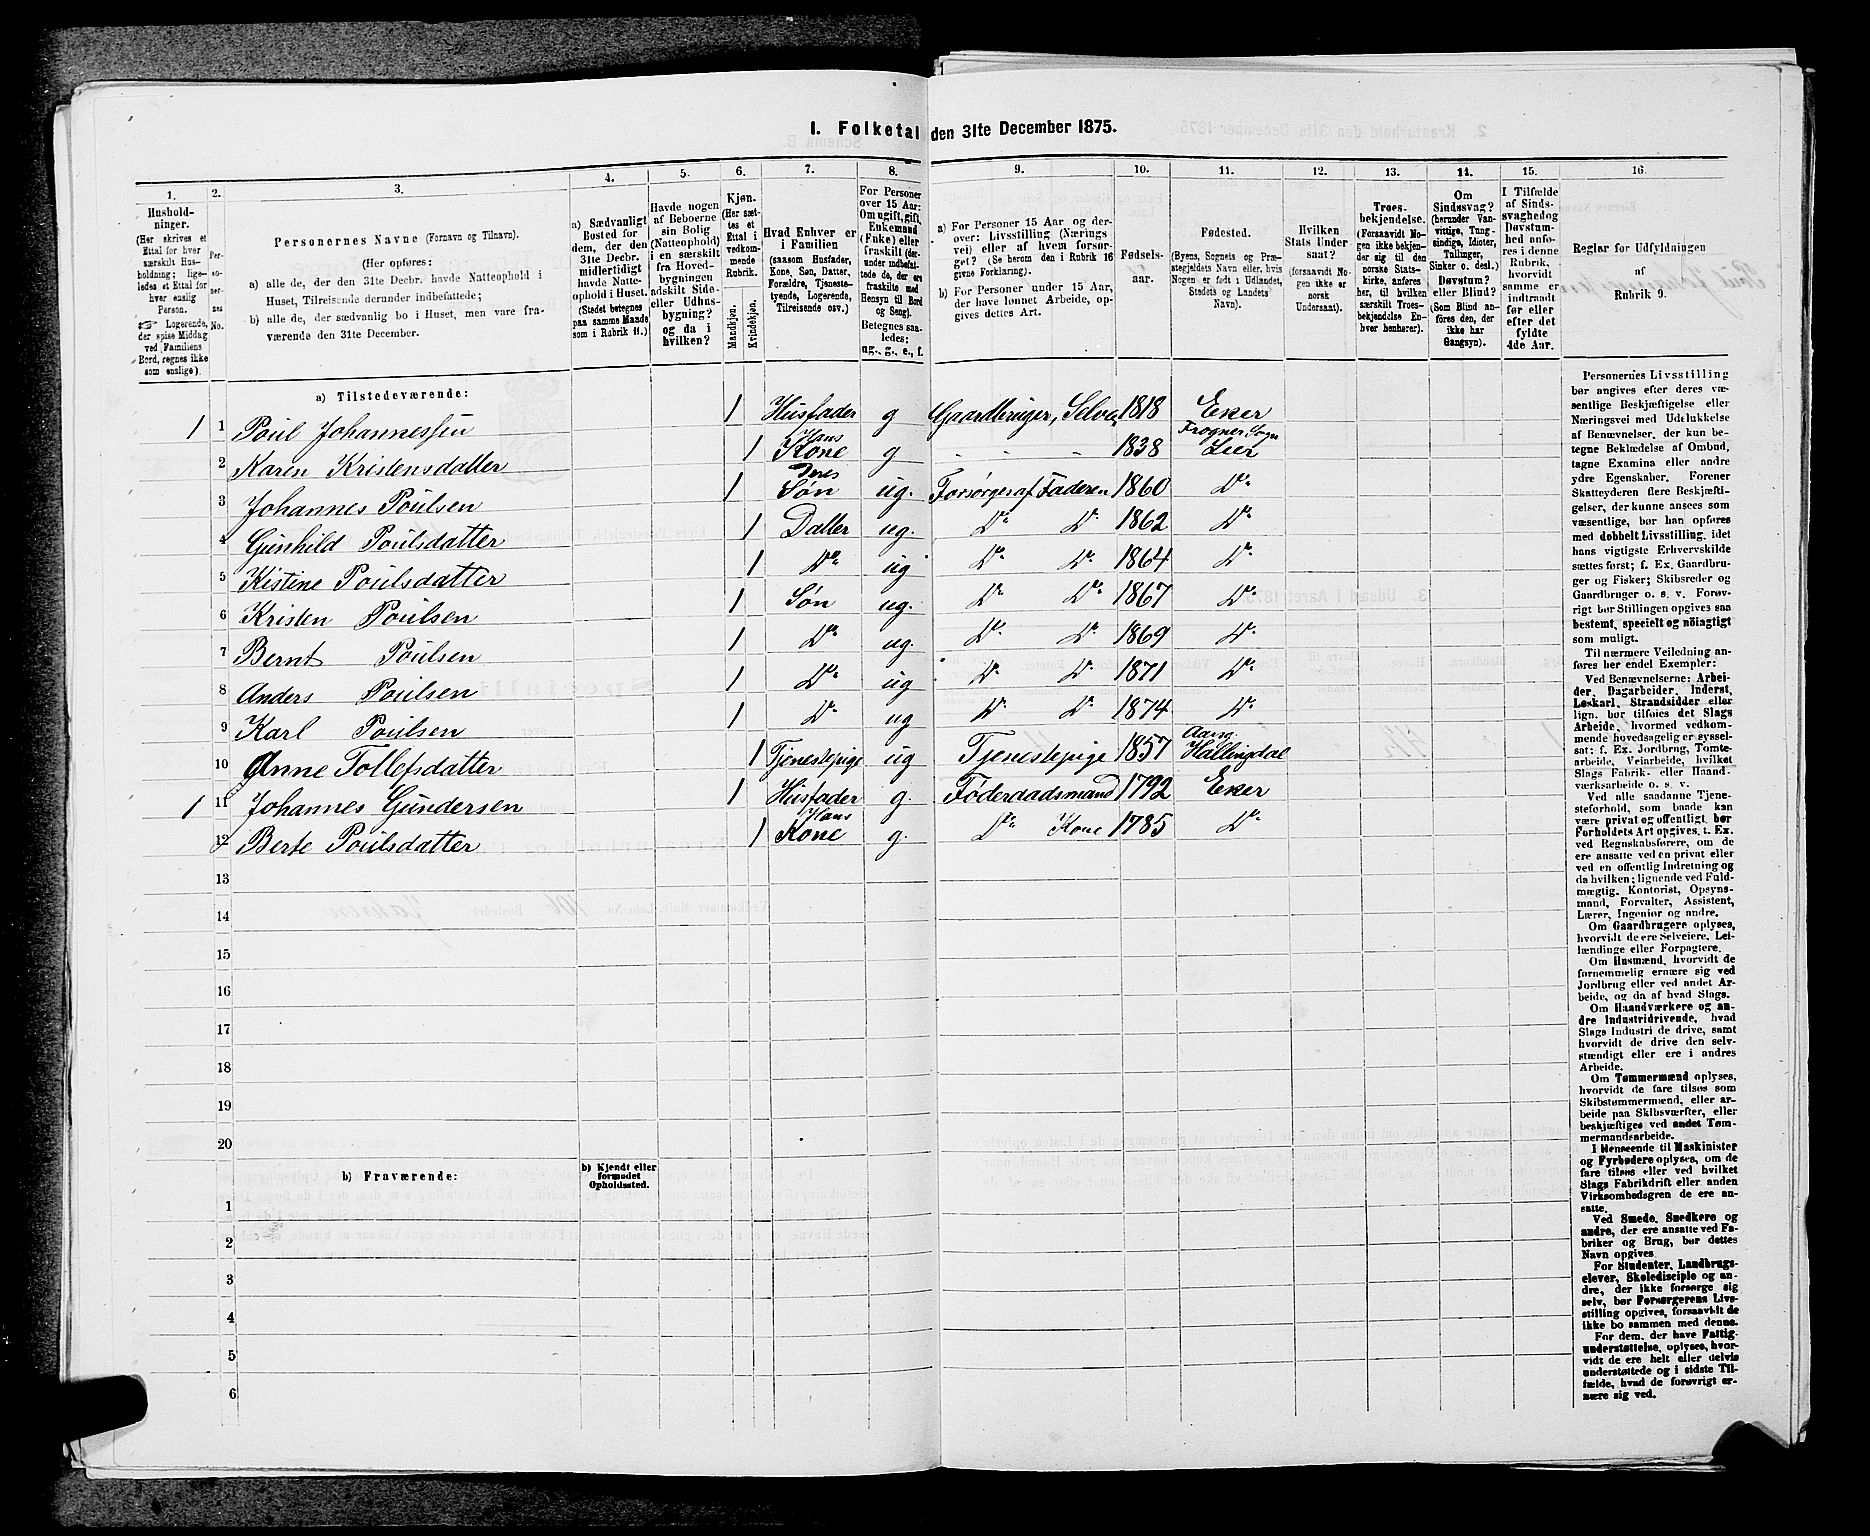 1. Folketal den 31te December 1875.
1.
2.
3.
4.
5.
6.
7.
8.
9.
10.
11.
12.
13.
14.
15.
16
Hushold-
ninger.
(Her skrives et
Ettal for hver
særskilt Hus-
holdning; lige-
ledes et Ettal for
hver enslig
Person.
☞ Logerende,
der spise Middag
ved Familiens
Bord, regnes ikke
som enslige).
Per-
so-
ner-
nes
No.
Personernes Navne (Fornavn og Tilnavn).
(Her opføres:
a) alle de, der den 31te Decbr. havde Natteophold i
Huset, Tilreisende derunder indbefattede;
b) alle de, der sædvanlig bo i Huset, men vare fra-
værende den 31te December.
a) Sædvanligt
Bosted for
dem, der den
31te Decbr.
midlertidigt
havde Natte-
ophold i Huset.
(Stedet betegnes
paa samme Maade
som i Rubrik 11.)
Havde nogen
af Beboerne
sin Bolig
(Natteophold)
i en særskilt
fra Hoved-
bygningen
adskilt Side-
eller Udhus-
bygning?
og da i
hvilken?
Kjøn.
(Her sæt-
tes et
Ettal i
vedkom-
mende
Rubrik.
Mandkjøn.
Kvindekjøn.
Hvad Enhver er
i Familien
(saasom Husfader,
Kone, Søn, Datter,
Forældre, Tjeneste-
tyende, Logerende,
Tilreisende osv.)
For Personer
over 15 Aar:
Om ugift, gift,
Enkemand
(Enke) eller
fraskilt (der-
under indbefat-
tede de, der ere
fraskilte med
Hensyn til Bord
og Seng).
Betegnes saa-
ledes:
ug., g., e., f.
a) For Personer 15 Aar og der-
over: Livsstilling (Nærings
vei) eller af hvem forsør-
get? (Se herom den i Rubrik 16
givne Forklaring).
b) For Personer under 15 Aar,
der have lønnet Arbeide, op-
gives dettes Art.
Fødsels-
aar.
Fødested.
(Byens, Sognets og Præ-
stegjeldets Navn eller, hvis
Nogen er født i Udlandet,
Stedets og Landets
Navn).
Hvilken
Stats Under-
saat?
(forsaavidt No-
gen ikke er
norsk
Undersaat).
Troes-
bekjendelse.
(Forsaavidt No-
gen ikke bekjen-
der sig til den
norske Stats-
kirke, anføres
her, til hvilken
særskilt Troes-
bekjendelse En-
hver henhører).
Om
Sindssvag?
(herunder Van-
vittige, Tung-
sindige, Idioter,
Tullinger,
Sinker o. desl.)
Døvstum?
eller Blind?
(Som Blind an-
føres den, der
ikke har
Gangsyn).
I Tilfælde
af Sinds-
svaghedog
Døvstum-
hed anfø-
res i denne
Rubrik,
hvorvidt
samme er
indtraadt
før eller
efter det
fyldte
4de Aar.
Reglar for Udfyldningen
af
Rubrik 9.
a) Tilstedeværende:
1 1 Poul Johannessen 1 Husfader g Gaardbruger, Selv 1818 Eker
2 Karen Kristensdatter 1 Hans Kone g - - - 1838 Frogner Sogn Lier
3 Johannes Poulsen 1 Deres Søn ug. Forsørges af Faderen 1860 Do
4 Gunhild Poulsdatter 1 Datter ug. Do Do 1862 Do
5 Kistine Poulsdatter 1 Do ug Do Do 1864 Do
6 Kristen Poulsen 1 Søn ug. Do Do 1867 Do
7 Bernt Poulsen 1 Do ug. Do Do 1869 Do
8 Anders Poulsen 1 Do ug Do Do 1871 Do
9 Karl Poulsen 1 Do ug Do Do 1874 Do
10 Anne Tollefsdatter 1 Tjenestepige ug Tjenestepige 1857 Hallingdal
1 11 Johannes Gundersen 1 Husfader g Føderaadsmand 1792 Eker
12 Berte Poulsdatter 1 Hans Kone g. Do Kone 1785 Do
13
14
15
16
17
18
19
20
b) Fraværende:
b) Kjendt eller
formodet
Opholdssted.
1
2
3
4
5
6
Personernes Livsstilling
bør angives efter deres væ-
sentlige Beskjæftigelse eller
Næringsvei med Udelukkelse
af Benævnelser, der kun be-
tegne Beklædelse af Ombud,
tagne Examina eller andre
ydre Egenskaber. Forener
Skatteyderen flere Beskjæfti-
gelser, der kunne ansees som
væsentlige, bør han opføres
med dobbelt Livsstilling, idet
hans vigtigste Erhvervskilde
sættes først; f. Ex. Gaardbru-
ger og Fisker; Skibsreder og
Gaardbruger o. s. v. Forøv-
rigt bør Stillingen opgives saa
bestemt, specielt og nøiagtigt
som muligt.
Til nærmere Veiledning an-
føres her endel Exempler:
Ved Benævnelserne: Arbei-
der, Dagarbeider, Inderst,
Løskarl, Strandsidder eller
lign. bør tilføies det Slags
Arbeide, hvormed vedkom-
mende hovedsagelig er syssel-
sat: f. Ex. Jordbrug, Tomte-
arbeide, Veiarbeide, hvilket
Slags Fabrik- eller Haand-
værksarbeide o. s. v.
Ved alle saadanne Tjene-
steforhold, som baade kan
være privat og offentligt, bør
Forholdets Art opgives. t. Ex.
ved Regnskabsførere, om de
ere ansatte ved en privat eller
ved en offentlig Indretning og
da hvilken; lignende ved Fuld-
mægtig, Kontorist, Opsyns-
mand, Forvalter, Assistent,
Lærer, Ingeniør og andre.
Om Gaardbrugere oplyses,
hvorvidt de ere Selveiere, Lei-
lændinge eller Forpagtere.
Om Husmænd, hvorvidt de
fornemmelig ernære sig ved
Jordbrug eller ved andet Ar-
beide, og da af hvad Slags.
Om Haandværkere og an-
dre Industridrivende, hvad
Slags Industri de drive, samt
hvorvidt de drive den selv-
stændigt eller ere i andres
Arbeide.
Om Tømmermænd oplyses,
hvorvidt de fare tilsøs som
Skibstømmermænd, eller ar-
beide paa Skibsværfter, eller
beskjæftiges ved andet Tøm-
mermandsarbeide.
I Henseende til Maskinister
og Fyrbødere oplyses, om de
fare tilsøs eller ved hvilket
Slags Fabrikdrift eller anden
Virksomhedsgren de ere an-
satte.
Ved Smede, Snedkere og
andre, der ere ansatte ved Fa-
briker og Brug, bør dettes
Navn opgives.
For Studenter, Landbrugs-
elever, Skoledisciple og an-
dre, der ikke forsørge sig
selv, bør Forsørgerens Livs-
stilling opgives, forsaavidt de
ikke bo sammen med denne.
For dem, der have Fattig-
understøttelse, oplyses, hvor-
vidt de ere helt eller delvis
understøttede og i sidste Til-
fælde, hvad de forøvrigt er-
nære sig ved.